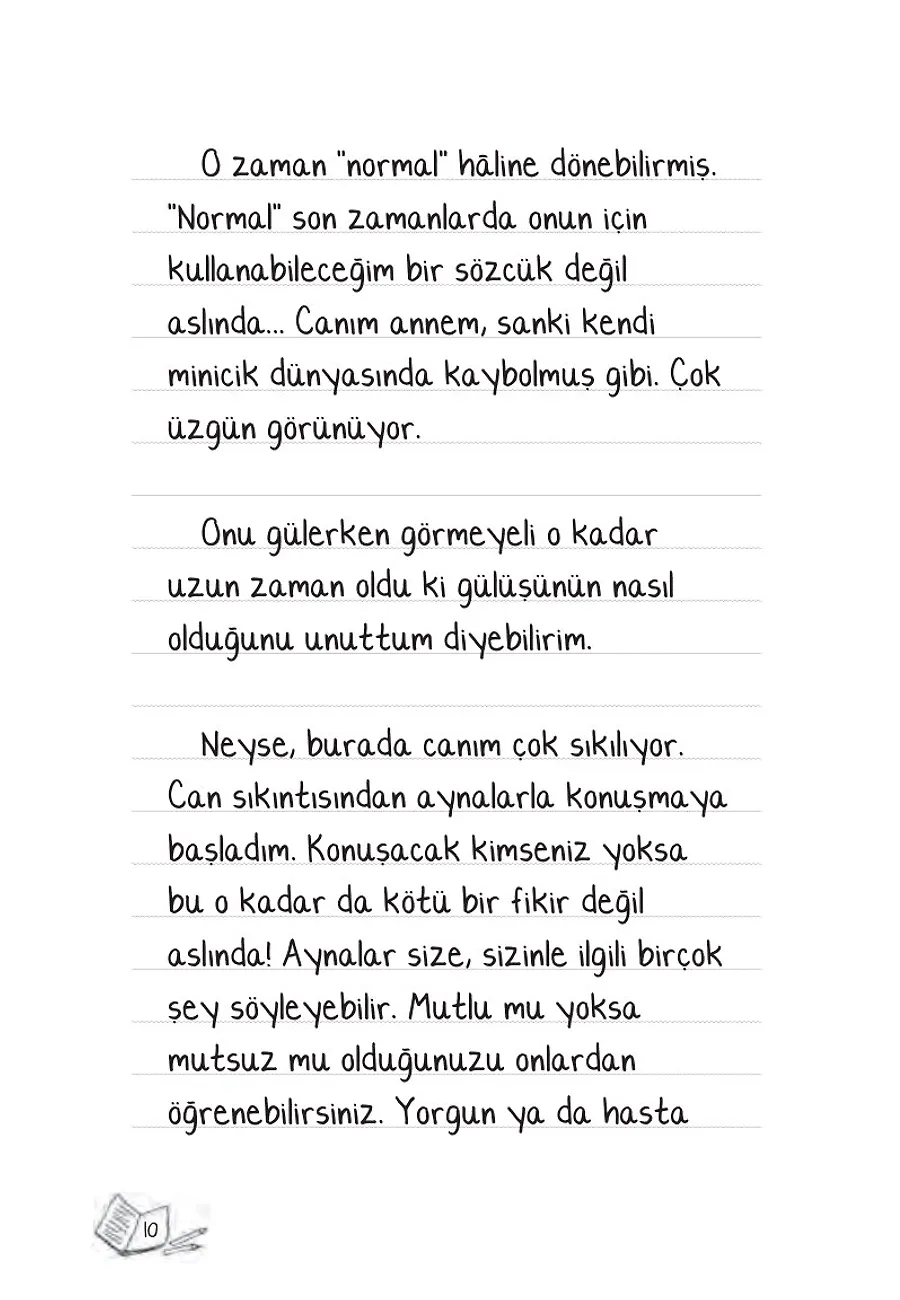 O zaman "normal" hāline dönebilirmiş.
"Normal" son zamanlarda onun için
kullanabileceğim bir sözcük değil
aslında... Canım annem, sanki kendi
minicik dünyasında kaybolmuş gibi. Çok
üzgün görünüyor.
Onu gülerken görmeyeli o kadar
uzun zaman oldu ki gülüşünün nasıl
olduğunu unuttum diyebilirim.
Neyse, burada canım çok sıkılıyor.
Can sıkıntısından aynalarla konuşmaya
başladım. Konuşacak kimseniz yoksa
bu o kadar da kötü bir fikir değil
aslında! Aynalar size, sizinle ilgili birçok
şey söyleyebilir. Mutlu mu yoksa
mutsuz mu olduğunuzu onlardan
öğrenebilirsiniz. Yorgun ya da hasta
10